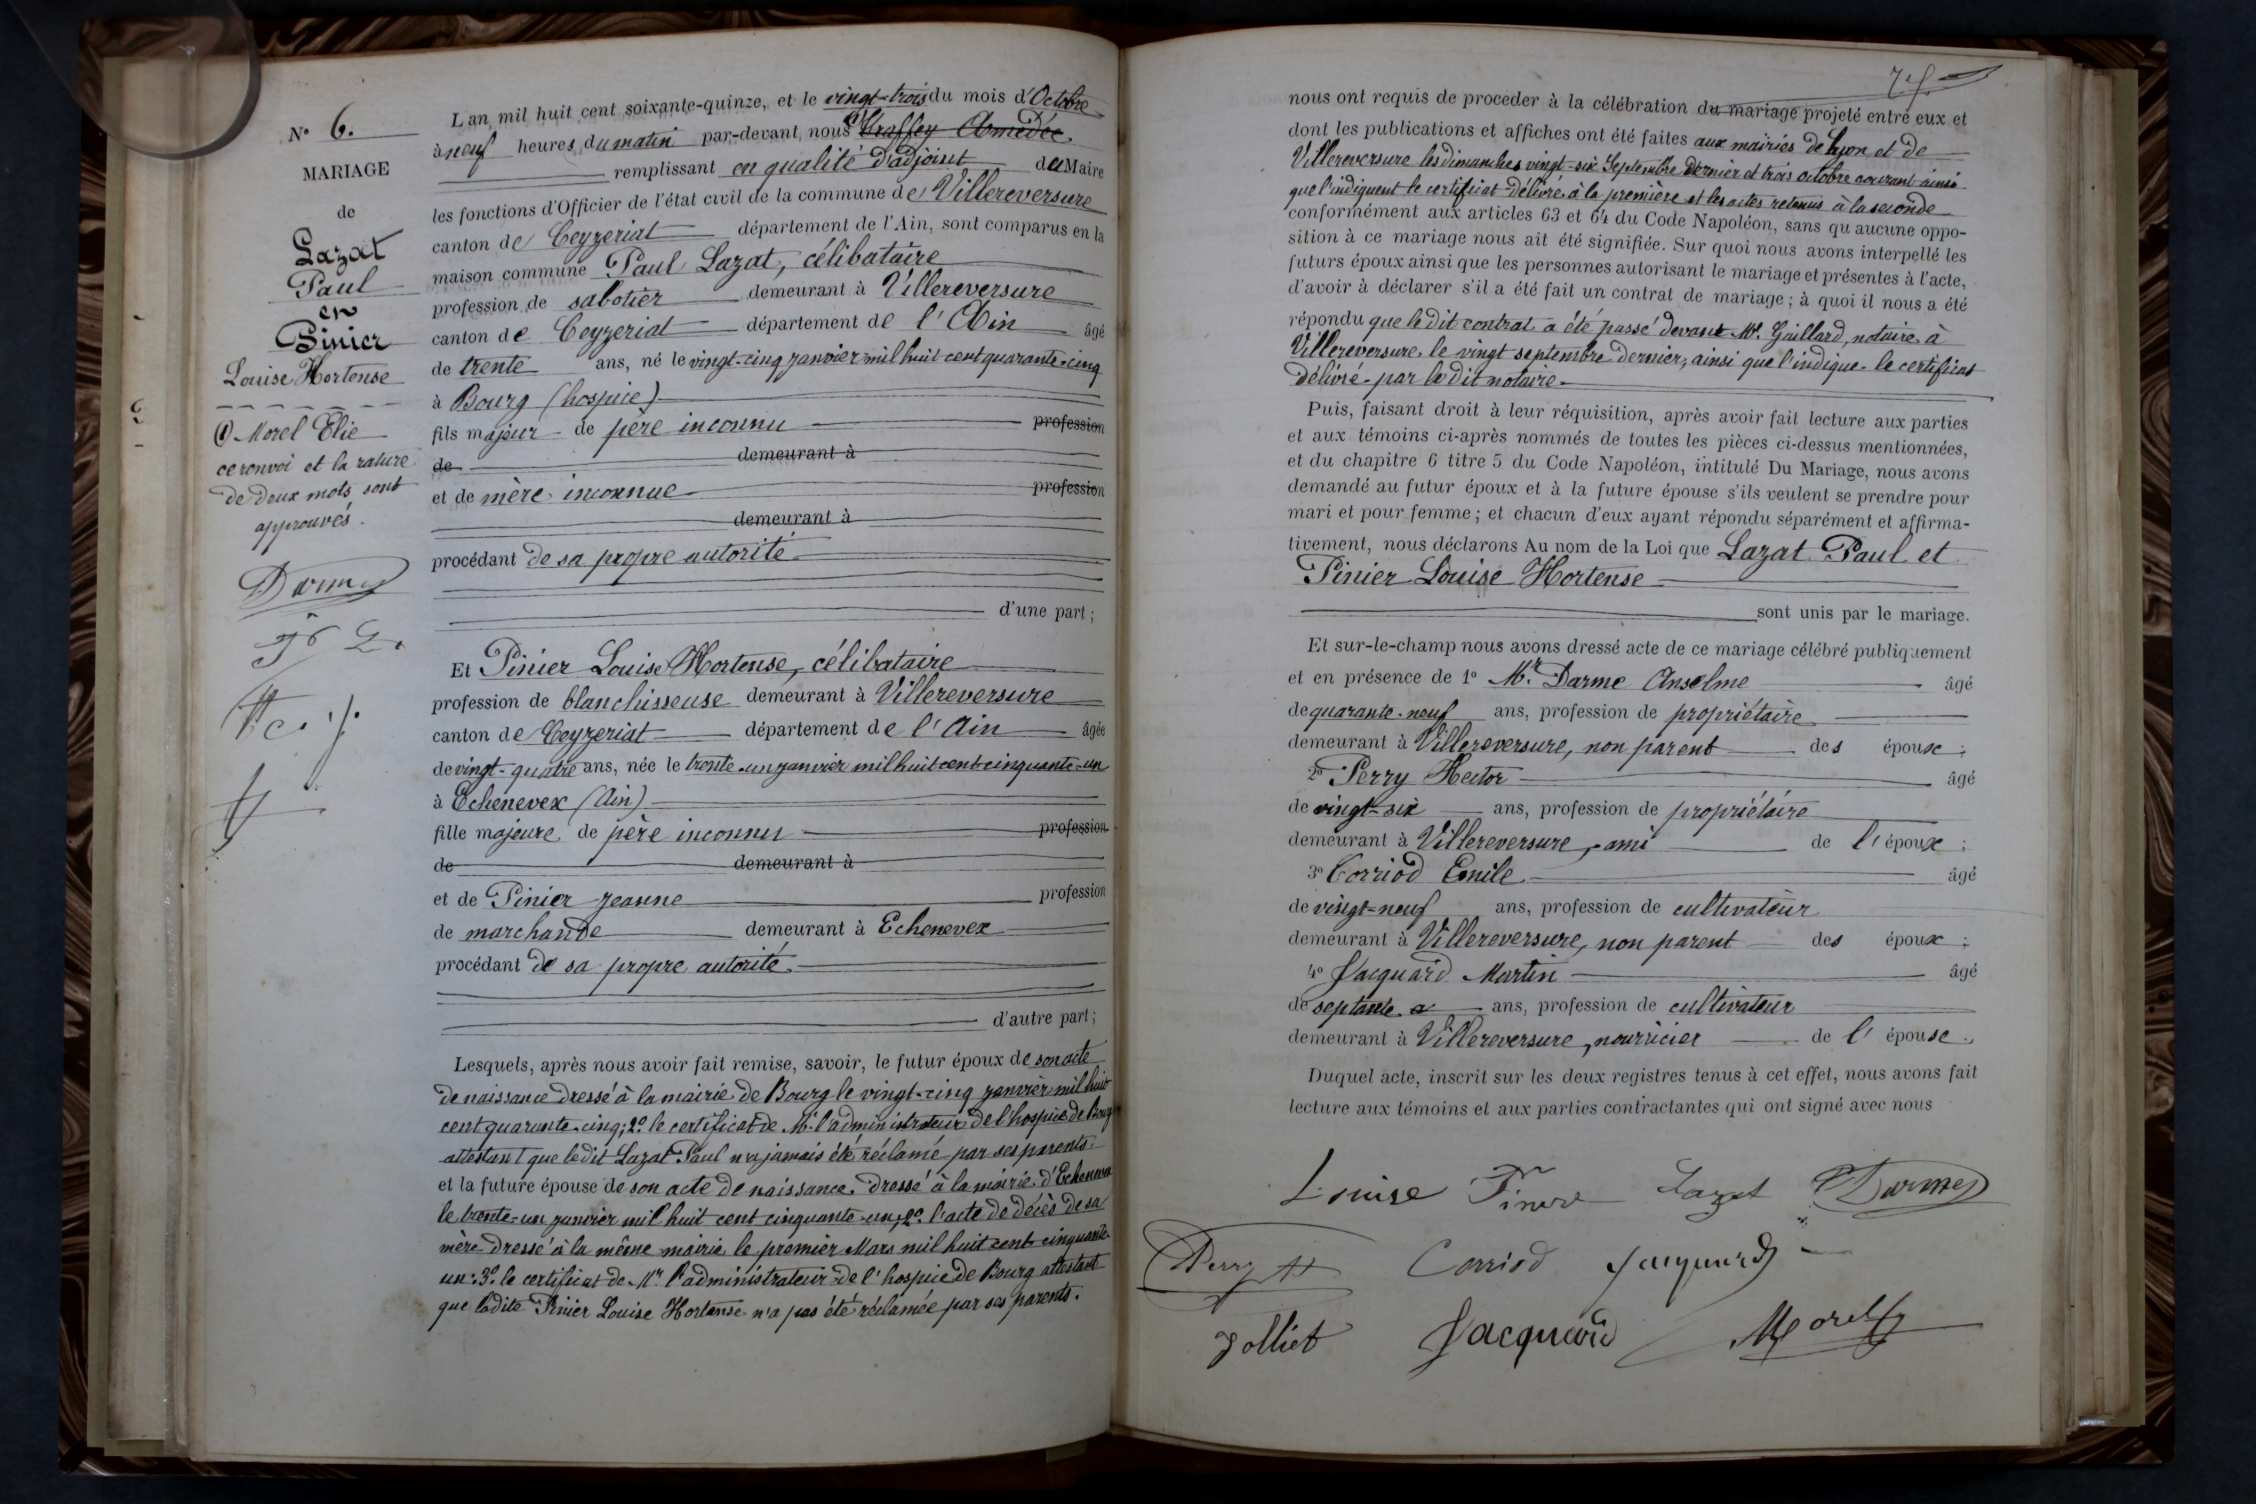 N° 6.
MARIAGE
de
Lazat
Paul
en
Pinier
Louise Hortense
(1) Morel Elie
ce renvoi et la rature
de deux mots sont
approuvés.
Darme
L'an mil huit cent soixante-quinze, et le vingt-trois du mois d'Octobre
à neuf heures du matin par-devant nous (1) Amédée
remplissant en qualité d'adjoint du Maire
les fonctions d'Officier de l'état civil de la commune de Villereversure
canton de Ceyzeriat département de l'Ain, sont comparus en la
maison commune Paul Lazat, célibataire
profession de sabotier demeurant à Villereversure
canton de Ceyzeriat département de l'Ain âgé
de trente ans, né le vingt-cinq janvier mil huit cent quarante-cinq
à Bourg (hospice)
fils majeur de père inconnu profession
de demeurant à
et de mère inconnue profession
demeurant à
procédant de sa propre autorité
d'une part ;
Et Pinier Louise Hortense, célibataire
profession de blanchisseuse demeurant à Villereversure
canton de Ceyzeriat département de l'Ain âgée
de vingt-quatre ans, née le trente-un janvier mil huit cent cinquante-un
à Echenevex (Ain)
fille majeure de père inconnu profession
de demeurant à
et de Pinier Jeanne profession
de marchande demeurant à Echenevex
procédant de sa propre autorité.
d'autre part ;
Lesquels, après nous avoir fait remise, savoir, le futur époux de son acte
de naissance dressé à la mairie de Bourg le vingt-cinq janvier mil huit
cent quarante-cinq; 2° le certificat de Mr l'administrateur de l'hospice de Bourg
attestant que ledit Lazat Paul n'a jamais été réclamé par ses parents.
et la future épouse de son acte de naissance dressé à la mairie d'Echenevex
le trente-un janvier mil huit cent cinquante-un; 2° l'acte de décès de sa
mère dressé à la même mairie le premier Mars mil huit cent cinquante
un. 3° le certificat de Mr l'administrateur de l'hospice de Bourg attestant
que ladite Pinier Louise Hortense n'a pas été réclamée par ses parents.
nous ont requis de procéder à la célébration du mariage projeté entre eux et
dont les publications et affiches ont été faites aux mairies de Lyon et de
Villereversure les dimanches vingt-six Septembre dernier et trois octobre courant ainsi
que l'indiquent le certificat délivré à la première et les actes retenus à la seconde
conformément aux articles 63 et 64 du Code Napoléon, sans qu'aucune oppo-
sition à ce mariage nous ait été signifiée. Sur quoi nous avons interpellé les
futurs époux ainsi que les personnes autorisant le mariage et présentes à l'acte,
d'avoir à déclarer s'il a été fait un contrat de mariage ; à quoi il nous a été
répondu que le dit contrat a été passé devant Me Gaillard, notaire à
Villereversure le vingt septembre dernier, ainsi que l'indique le certificat
délivré par le dit notaire.
Puis, faisant droit à leur réquisition, après avoir fait lecture aux parties
et aux témoins ci-après nommés de toutes les pièces ci-dessus mentionnées,
et du chapitre 6 titre 5 du Code Napoléon, intitulé Du Mariage, nous avons
demandé au futur époux et à la future épouse s'ils veulent se prendre pour
mari et pour femme ; et chacun d'eux ayant répondu séparément et affirma-
tivement, nous déclarons Au nom de la Loi que Lazat Paul et
Pinier Louise Hortense
sont unis par le mariage.
Et sur-le-champ nous avons dressé acte de ce mariage célébré publiquement
et en présence de 1° Mr. Darme Anselme âgé
de quarante-neuf ans, profession de propriétaire
demeurant à Villereversure, non parent des époux ;
2° Perry Hector âgé
de vingt-six ans, profession de propriétaire
demeurant à Villereversure, ami de l'époux ;
3° Corriod Emile âgé
de vingt-neuf ans, profession de cultivateur
demeurant à Villereversure, non parent des époux ;
4° Jacquard Martin âgé
de septante ans, profession de cultivateur
demeurant à Villereversure, nourricier de l'épouse.
Duquel acte, inscrit sur les deux registres tenus à cet effet, nous avons fait
lecture aux témoins et aux parties contractantes qui ont signé avec nous
Louise Lazat Darme
Perry Corriod Jacquard
Jolliet Jacquard Morel